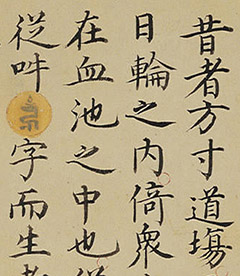 昔者方寸道塲
日輪之内倚衆
在血池之中也
從吽字而生